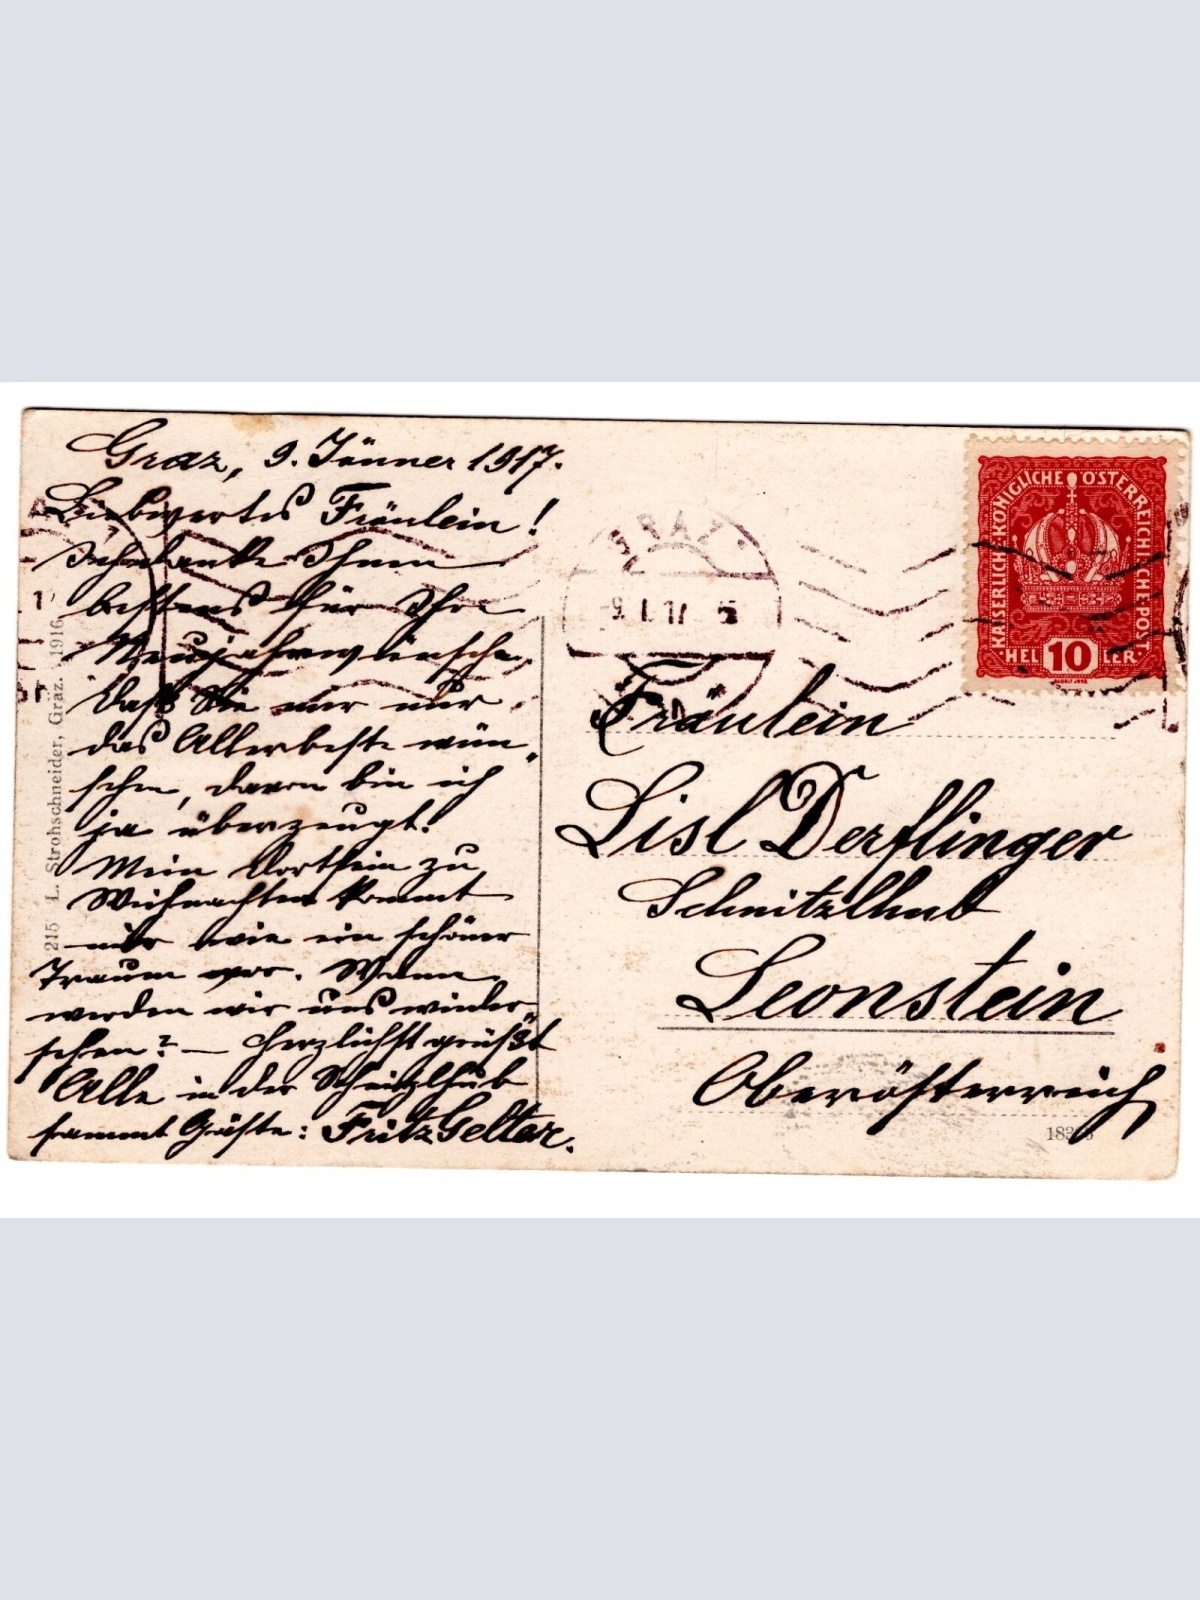 Graz, 9. Jänner 1917.
Liebwertes Fräulein!
Ich danke Ihnen
bestens für Ihre
Neujahrswünsche,
daß Sie mir nur
das Allerbeste wün„
schen, davon bin ich
ja überzeugt.
Mein Dortsein zu
Weihnachten kommt
mir wie ein schöner
Traum vor. Wann
werden wir uns wieder„
sehen? — Herzlichst grüßt
Alle in der Schnitzlhub
sammt Gäste: Fritz
215 L. Strohschneider, Graz. 1916
GRAZ
9. I. 17
KAISERLICH-KÖNIGLICHE ÖSTERREICHISCHE POST
HEL 10 LER
Fräulein
Lisl Derflinger
Schnitzlhub
Leonstein
Oberösterreich